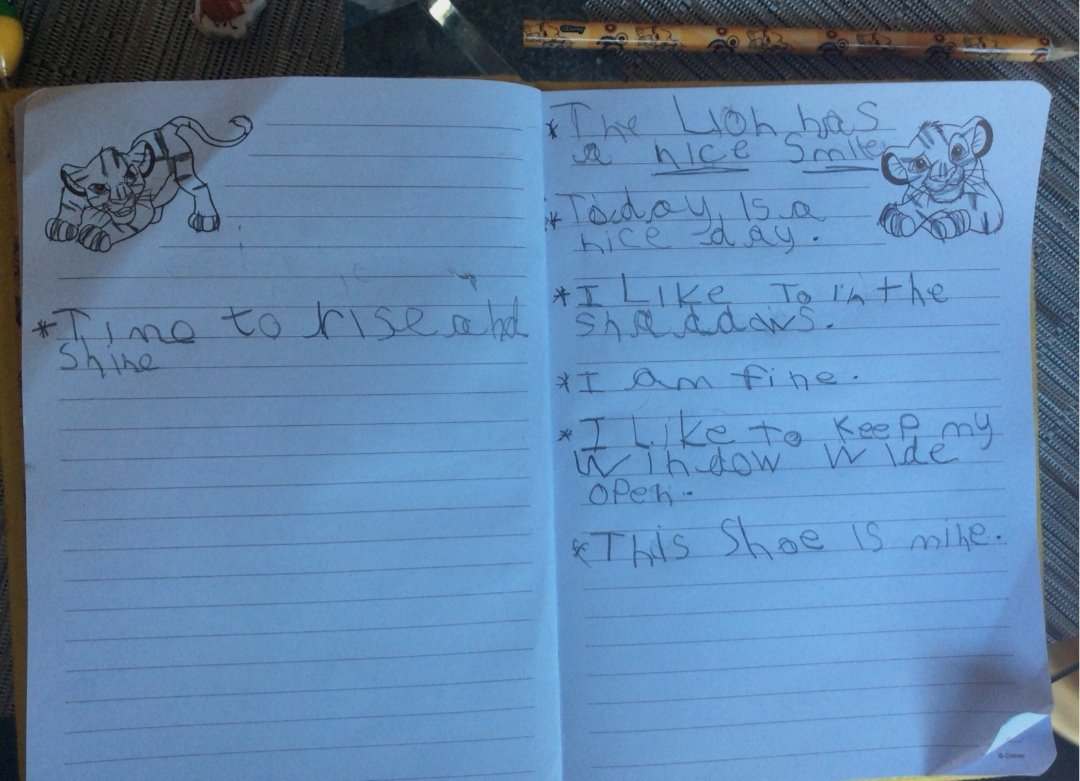 * Time to rise and
shine
* The Lion has
a nice Smile
* Today is a
nice day.
* I Like To in the
Shaddaws.
* I am fine.
* I Like to keep my
Window Wide
open.
* This Shoe is mine.
© Disney